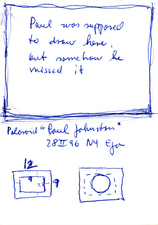 Paul was supposed
to draw here,
but somehow he
missed it
Polaroid "Paul Johnston"
28 II 96 NY Ego
12
9